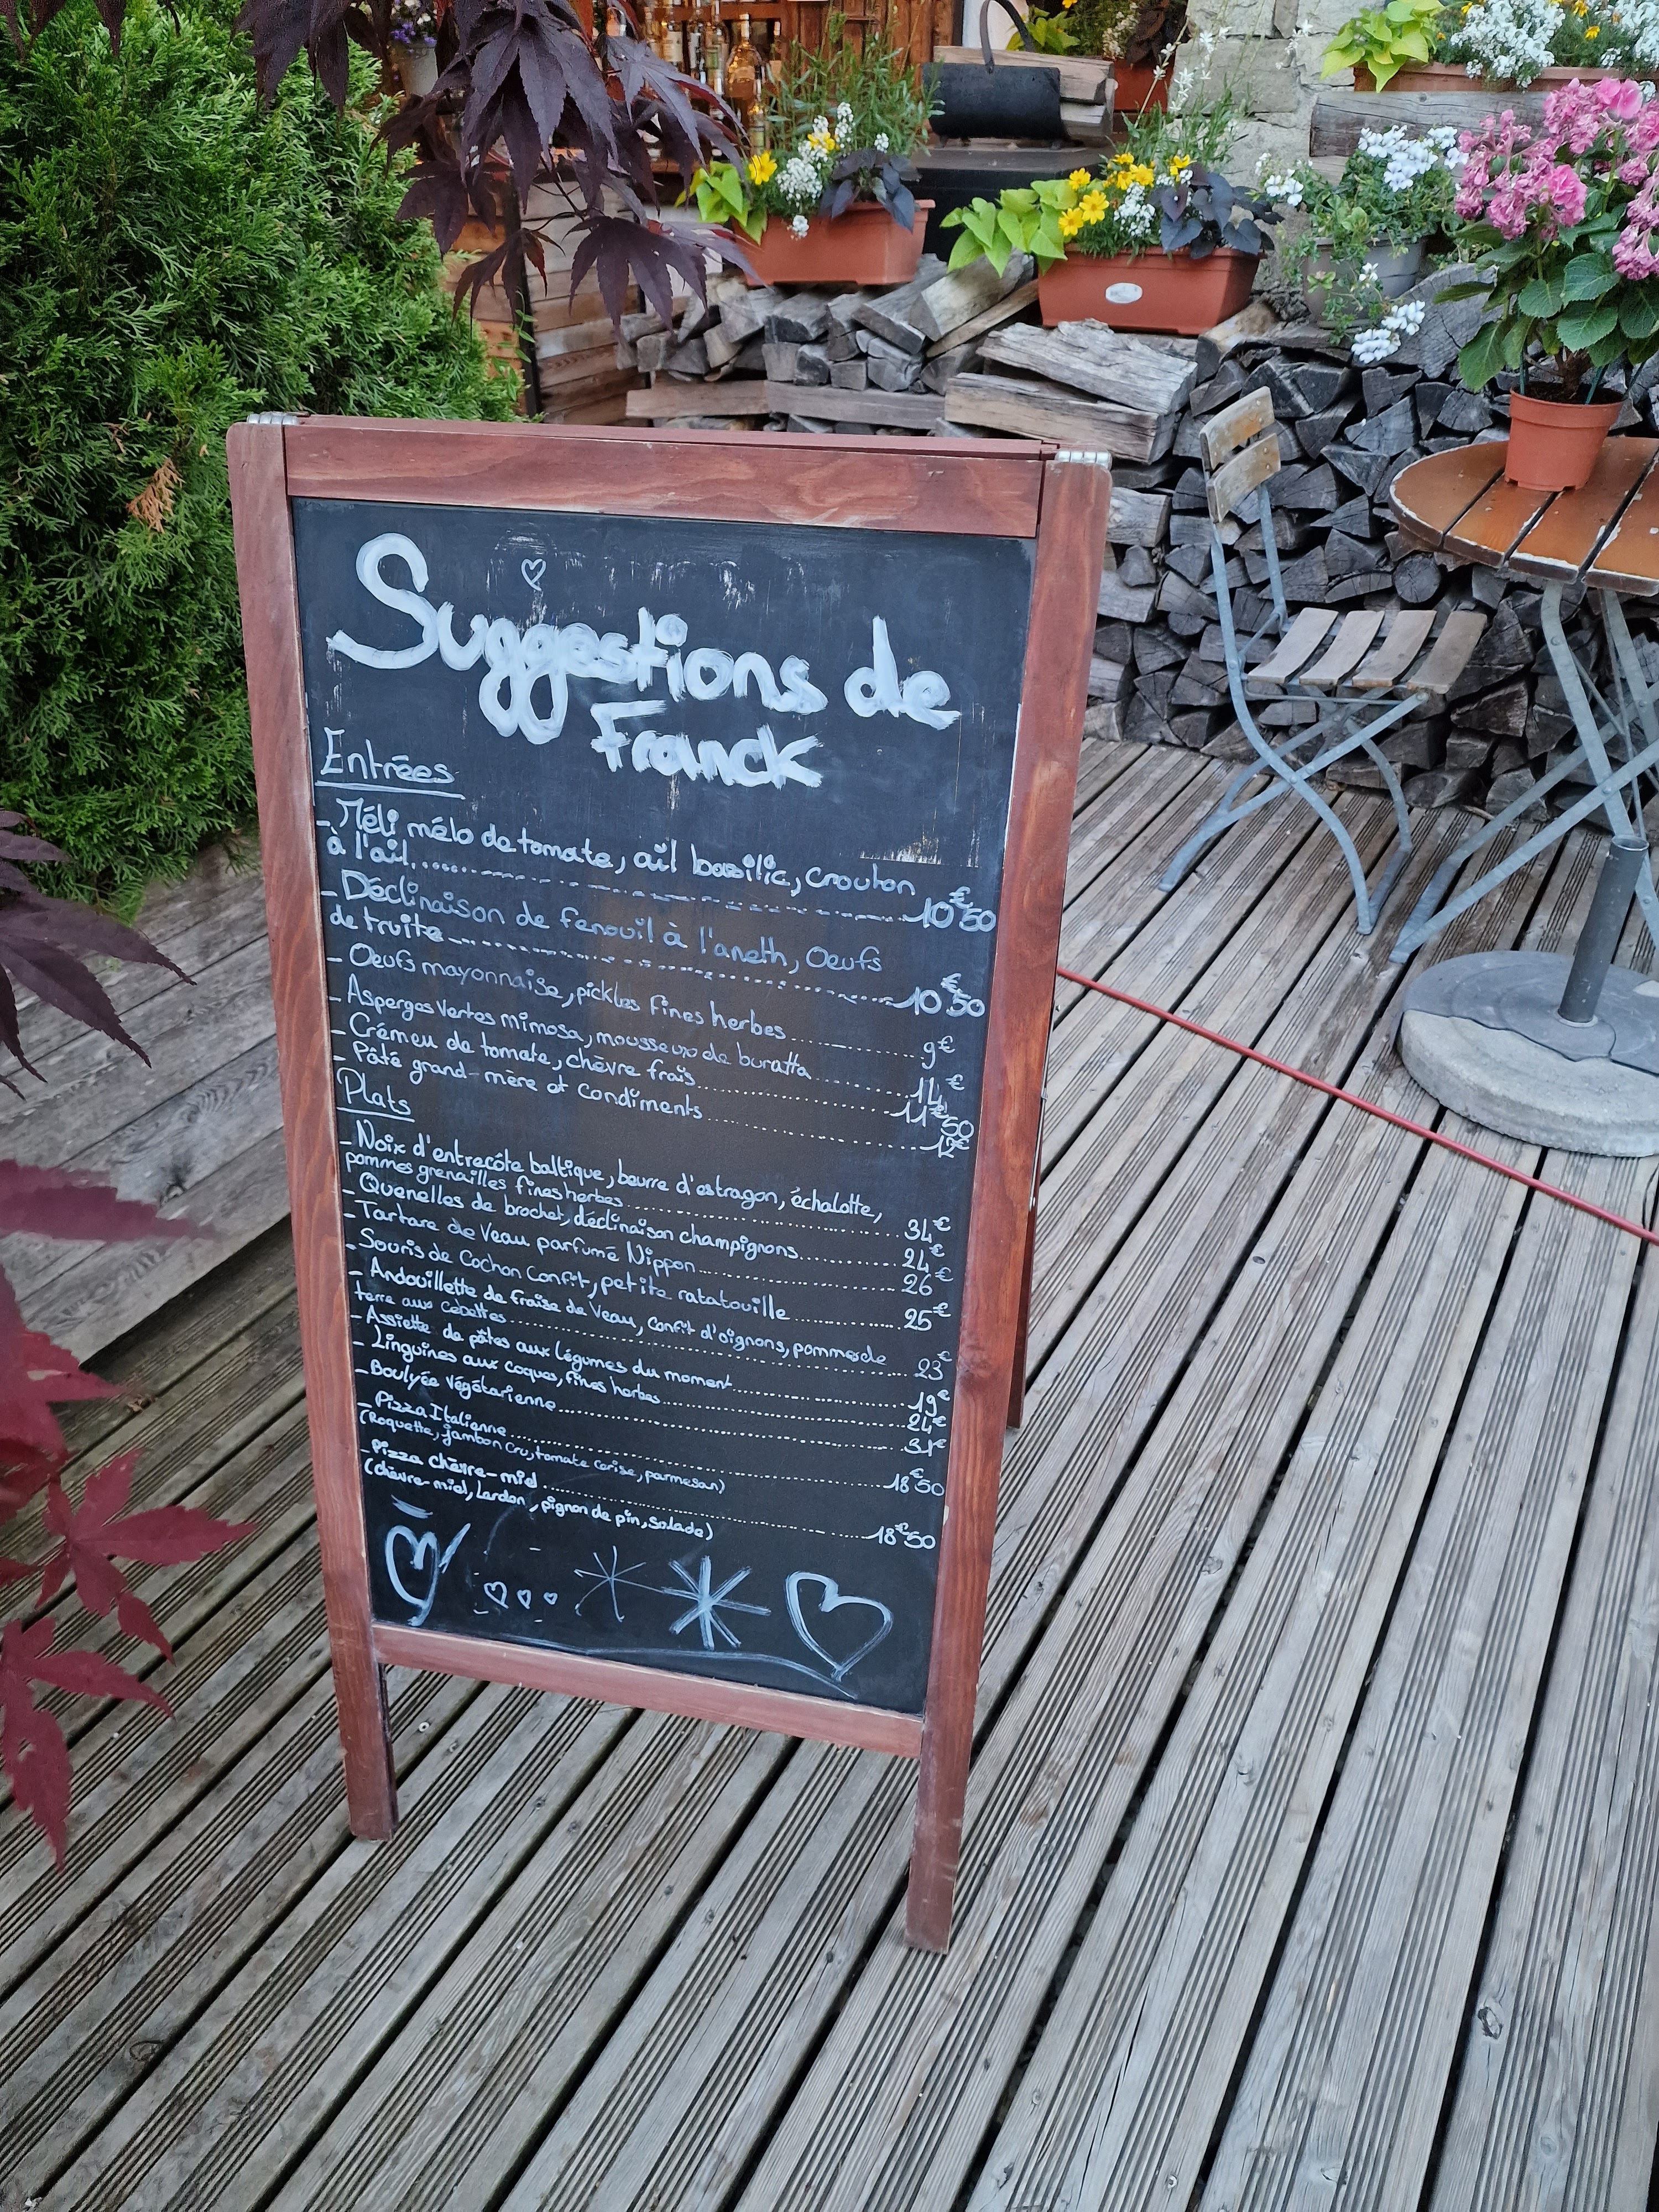 Suggestions de
Franck
Entrées
- Méli mélo de tomate, ail basilic, crouton
à l'ail.......................10€50
- Déclinaison de fenouil à l'aneth, Oeufs
de truite.......................10€50
- Oeufs mayonnaise, pickles fines herbes.......................9€
- Asperges vertes mimosa, mousseux de buratta.......................14€
- Crémeu de tomate, chèvre frais.......................11€50
- Pâté grand-mère et condiments.......................12€
Plats
- Noix d'entrecôte baltique, beurre d'estragon, échalotte,
pommes grenailles fines herbes.......................34€
- Quenelles de brochet, déclinaison champignons.......................24€
- Tartare de Veau parfumé Nippon.......................26€
- Souris de Cochon Confit, petite ratatouille.......................25€
- Andouillette de fraise de Veau, confit d'oignons, pomme de
terre aux cébettes.......................23€
- Assiette de pâtes aux légumes du moment.......................19€
- Linguines aux coques, fines herbes.......................24€
- Végétarienne.......................31€
- Pizza Italienne.......................18€50
(Roquette, jambon cru, tomate cerise, parmesan)
- Pizza chèvre-miel.......................18€50
(chèvre-miel, Lardon, pignon de pin, salade)